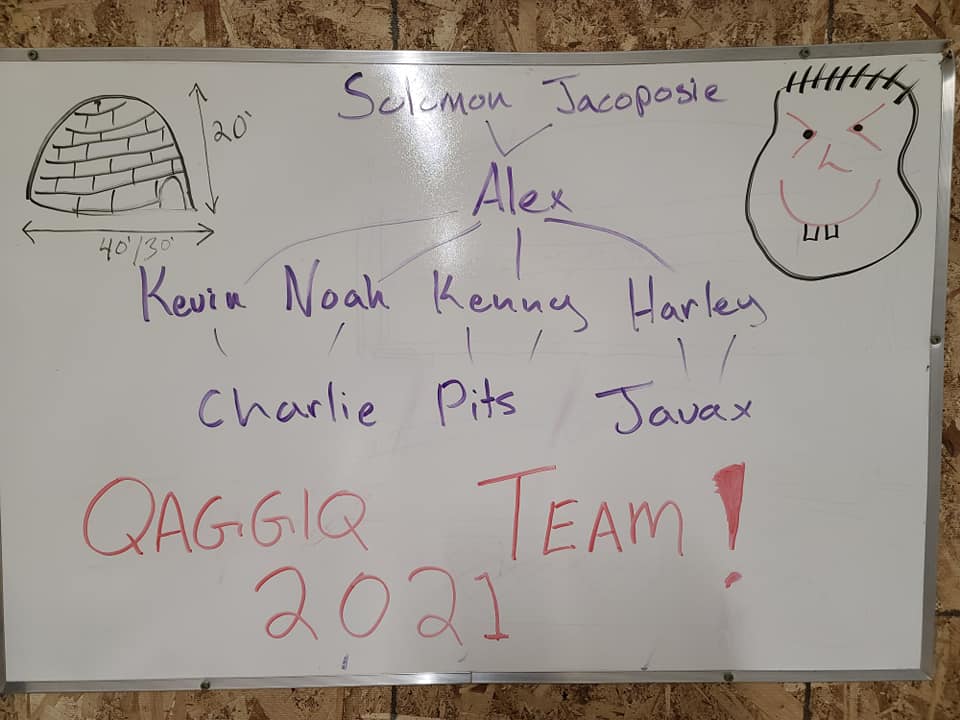 Solomon Jacoposie
20'
Alex
40'/30'
Kevin Noah Kenny Harley
Charlie Pits Javax
QAGGIQ TEAM!
2021